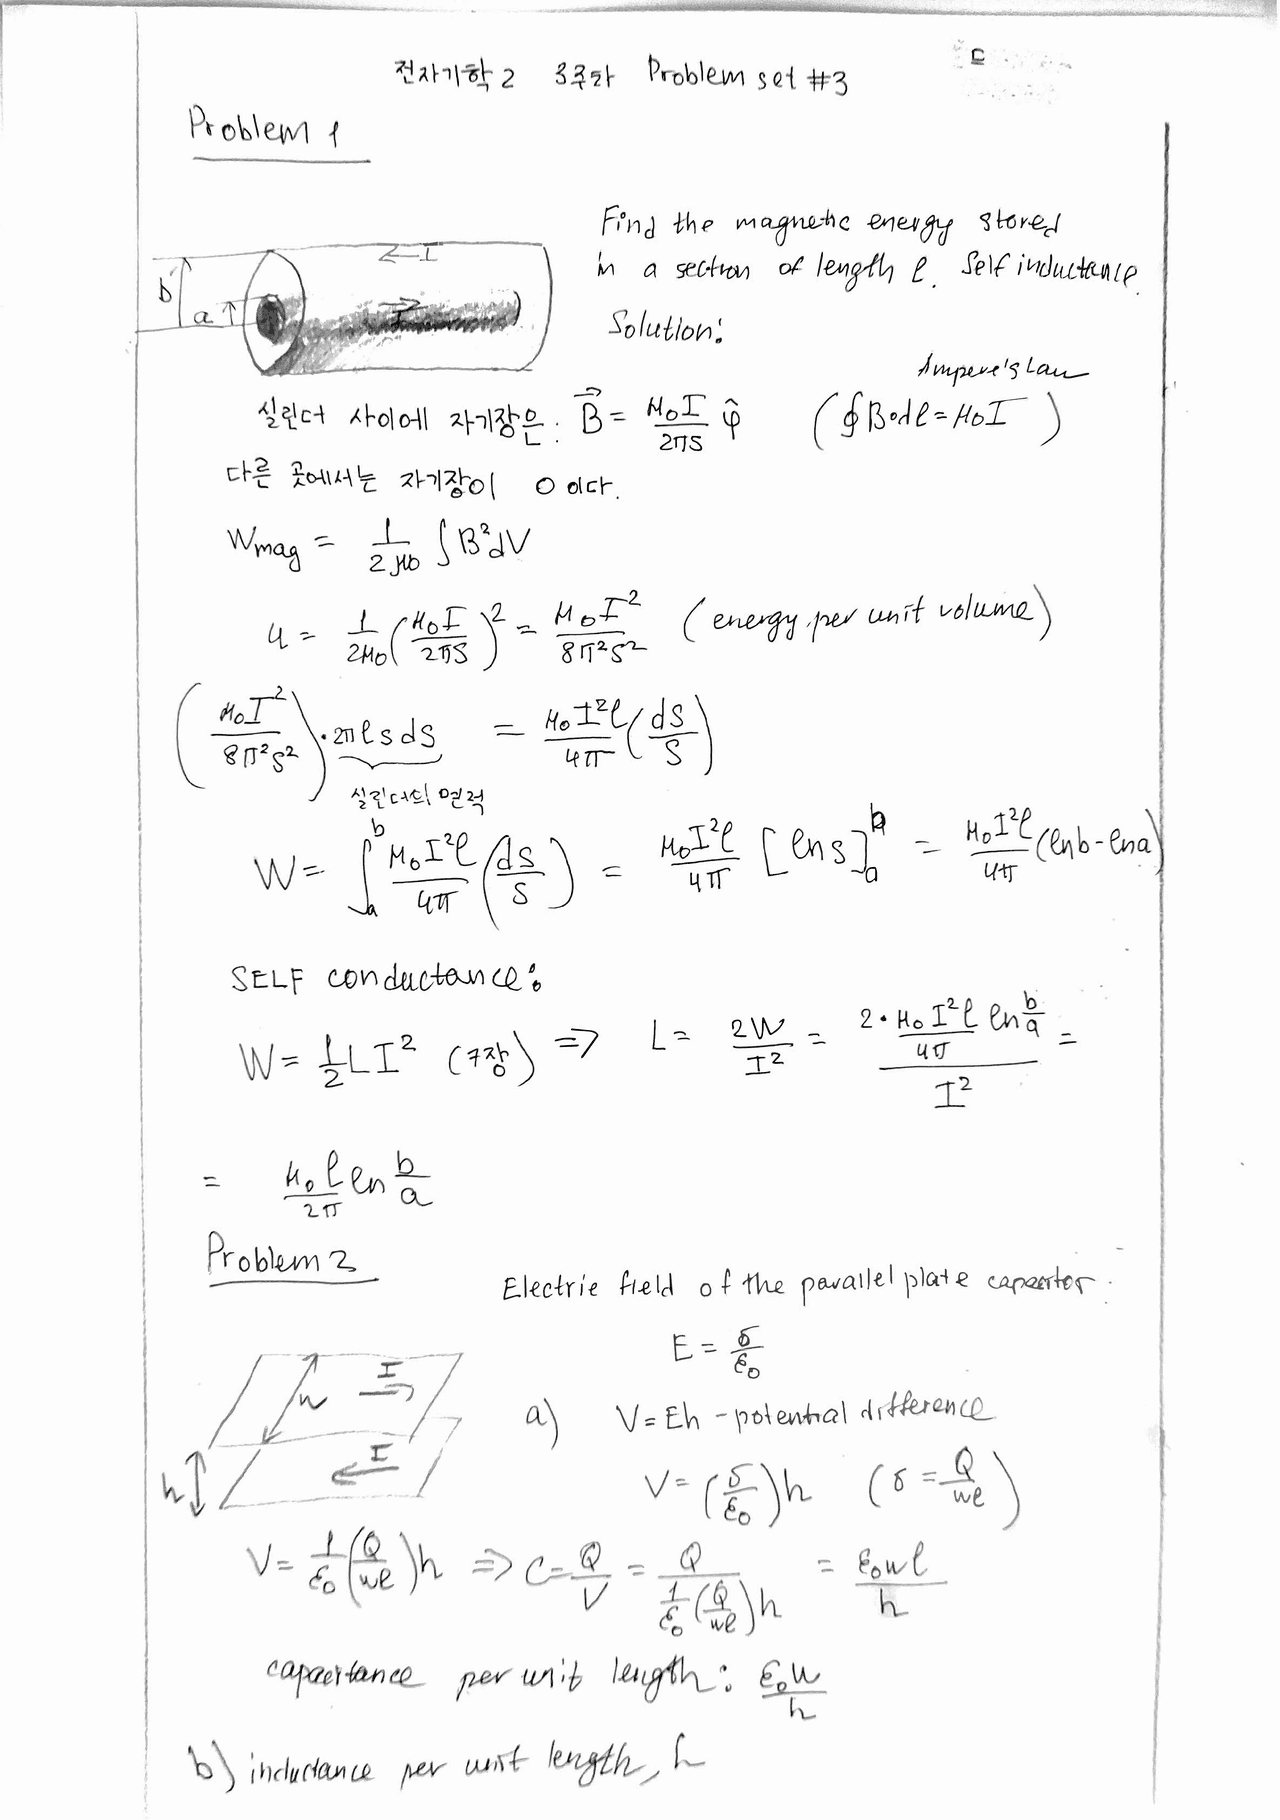 전자기학 2 3주차 Problem set #3
Problem 1
Find the magnetic energy stored
in a section of length ℓ. Self inductance.
Solution:
← I
b
a ↑
→
I
Ampere's Law
실린더 사이에 자기장은: B⃗ = μ₀I/2πs φ̂ (∮B∘dℓ = μ₀I)
다른 곳에서는 자기장이 0 이다.
Wmag = 1/2μ₀ ∫B²dV
u = 1/2μ₀ (μ₀I/2πs)² = μ₀I²/8π²s² (energy per unit volume)
(μ₀I²/8π²s²) · 2πℓs ds = μ₀I²ℓ/4π (ds/s)
실린더의 면적
W = ∫ₐᵇ μ₀I²ℓ/4π (ds/s) = μ₀I²ℓ/4π [ℓn s]ₐᵇ = μ₀I²ℓ/4π (ℓnb - ℓna)
SELF conductance:
W = 1/2 LI² (7장) => L = 2W/I² = (2 · μ₀I²ℓ/4π ℓn b/a)/I² =
= μ₀ℓ/2π ℓn b/a
Problem 2
Electric field of the parallel plate capacitor:
E = σ/ε₀
I →
w
← I
h
a) V = Eh - potential difference
V = (σ/ε₀)h (σ = Q/wℓ)
V = 1/ε₀ (Q/wℓ)h => C = Q/V = Q/(1/ε₀ (Q/wℓ)h) = ε₀wℓ/h
capacitance per unit length: ε₀w/h
b) inductance per unit length,